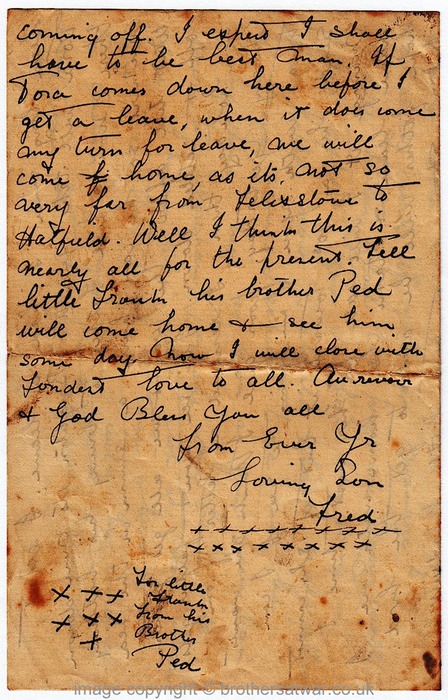 coming off. I expect I shall
have to be best man. If
Dora comes down here before I
get a leave, when it does come
my turn for leave, we will
come home, as its not so
very far from Felixstowe to
Hatfield. Well I think this is
nearly all for the present. Tell
little Frank his brother Ped
will come home & see him
some day. Now I will close with
Fondest love to all. Au revoir
& God Bless You all
From Ever Yr
Loving Son
Fred
x x x x x x x x x
x x x x x x x x
For little
x x x Frank
x x x from his
x Brother
Ped
image copyright © brothersatwar.co.uk